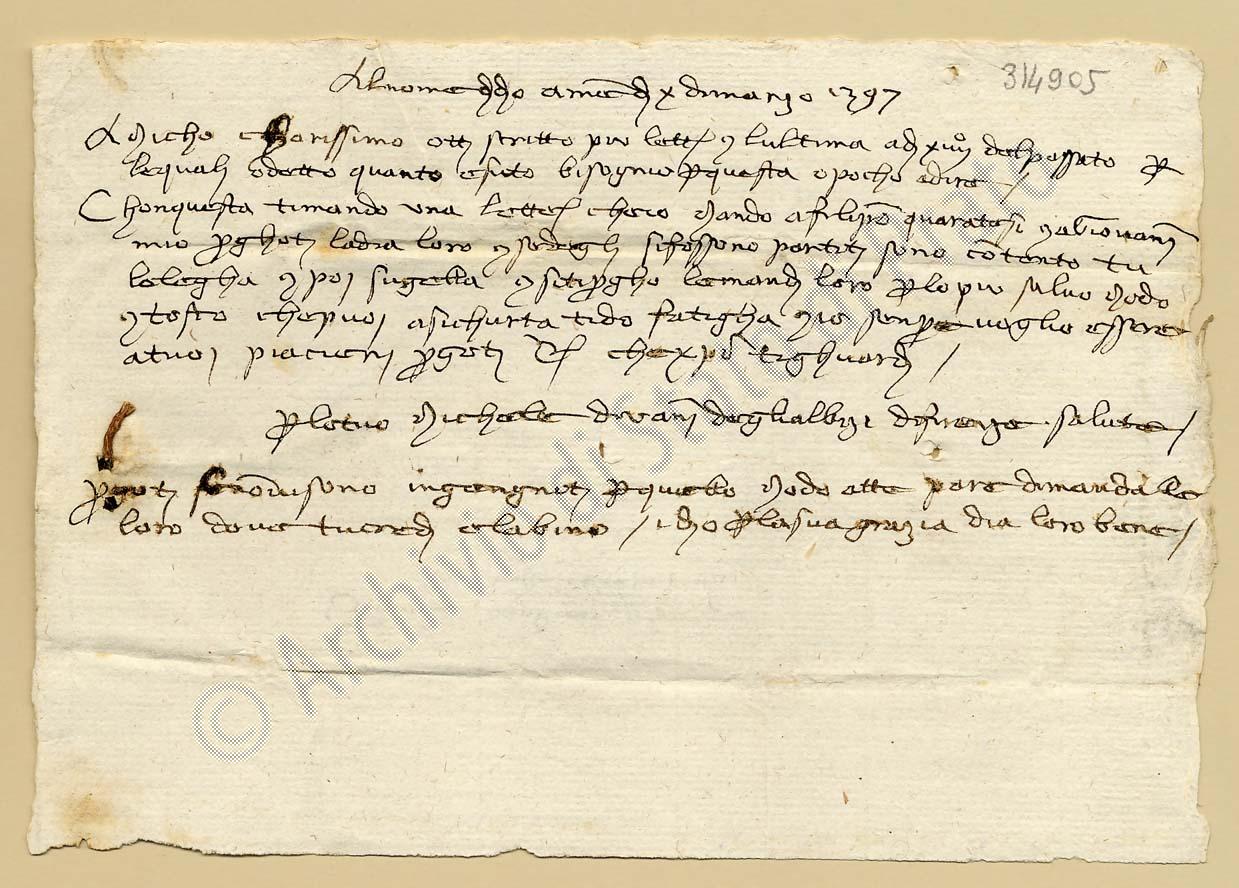 Al nome di dio amen di x di marzo 1397
314905
Amicho charissimo otti scritto più lettere e l'ultima a dì xiiij del passato per
le quali ò detto quanto è suto bisogno per questa ò pocho a dire /
Chon questa ti mando una lettera ch'io mando a Filippo Quaratesi e a Giovanni
mio prghoti la dia loro e se degli si fossono partiti sono contento tu
la legha e poi sugella e sì ti prgho le mandi loro per lo più salvo modo
e tosto che puoi a sichurtà ti do fatigha e io senpre voglio essere
a tuoi piacieri prghoti che Xpo ti ghuardi /
per lo tuo Michele di Vanni degli Albizi di Firenze salute /
prghoti se non vi sono ingengniti per quello modo a tte pare di mandalle
loro dove tu credi e l'abino / idio per la sua grazia dia loro bene /
© Archivio di Stato di Prato